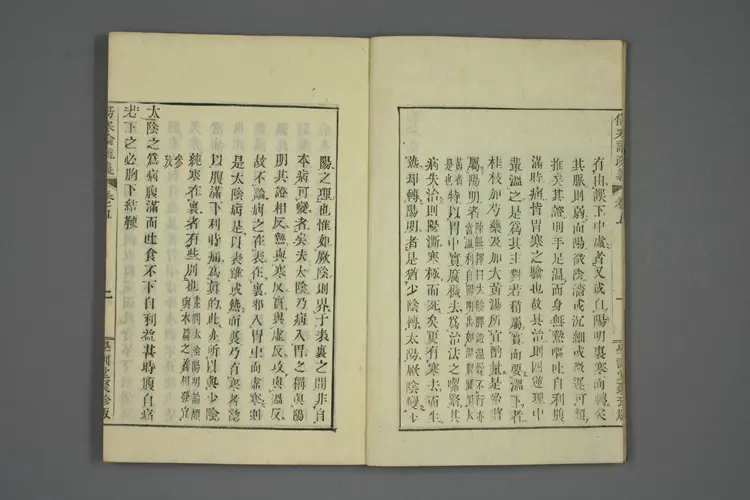 有由誤下中虛者又或自陽明裏寒而轉矣
其脈則弱而陽微陰濇或沉細或微遲可類
推矣其證則手足溫而身無熱嘔吐自利腹
滿時痛皆胃寒之驗也故其治則四逆理中
輩溫之是爲其主對若稍屬實而要溫下者
桂枝加芍藥及加大黃湯所宜酌量是當將
屬陽明者
特以胃中實腐穢去爲治法之緊
病失治則陽漸寒極而死矣更有寒去而生
熱却轉陽明者是猶少陰轉太陽厥陰變少
陽之理也惟如厥陰則界于表裏之間非自
本病可變者矣夫太陰乃病入胃之稱與陽
明其證相反熱與寒反實與虛反攻與溫反
故不論病之在表在裏邪入胃中而虛寒則
是太陰病是以表雖或熱而裏乃有寒者認
以腹滿下利時痛爲眞的此亦所以與少陰
純寒在裏者有些別也
太陰之爲病腹滿而吐食不下自利益甚時腹自痛
若下之必胸下結鞕
傷寒論疏義 卷五